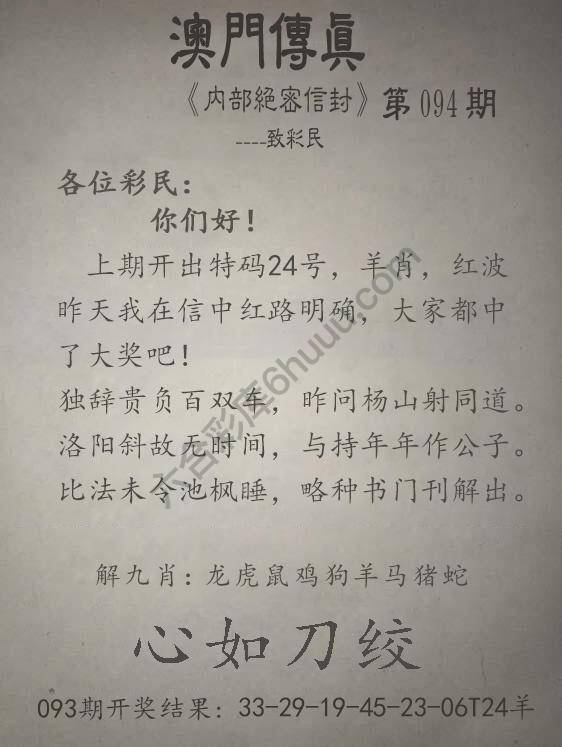 澳門傳眞
《内部絕密信封》第094期
----致彩民
各位彩民：
你们好！
上期开出特码24号，羊肖，红波
昨天我在信中红路明确，大家都中
了大奖吧！
独辞贵负百双车，昨问杨山射同道。
洛阳斜故无时间，与持年年作公子。
比法未令池枫睡，略种书门刊解出。
解九肖：龙虎鼠鸡狗羊马猪蛇
心如刀绞
093期开奖结果：33-29-19-45-23-06T24羊
六合彩库6huuu.com